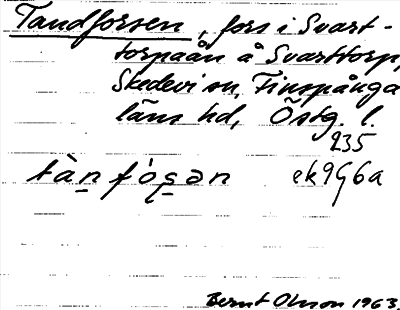 Tandforsen, fors i Svart-
torpaån å Svarttorp,
Skedevi sn, Finspånga
läns hd, Östg. l.
235
tàn fo̊ṣən ek9G6a
Bernt Olsson 1963.